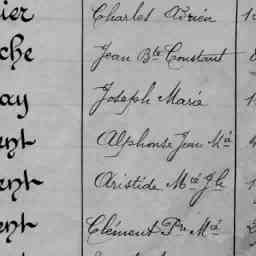 ier Charles Adrien 1
che Jean Bte Constant
ay Joseph Marie 1
ent Alphonse Jean Mie 4
ent Aristide Mie Jh 1
ent Clément Pre Mie 2